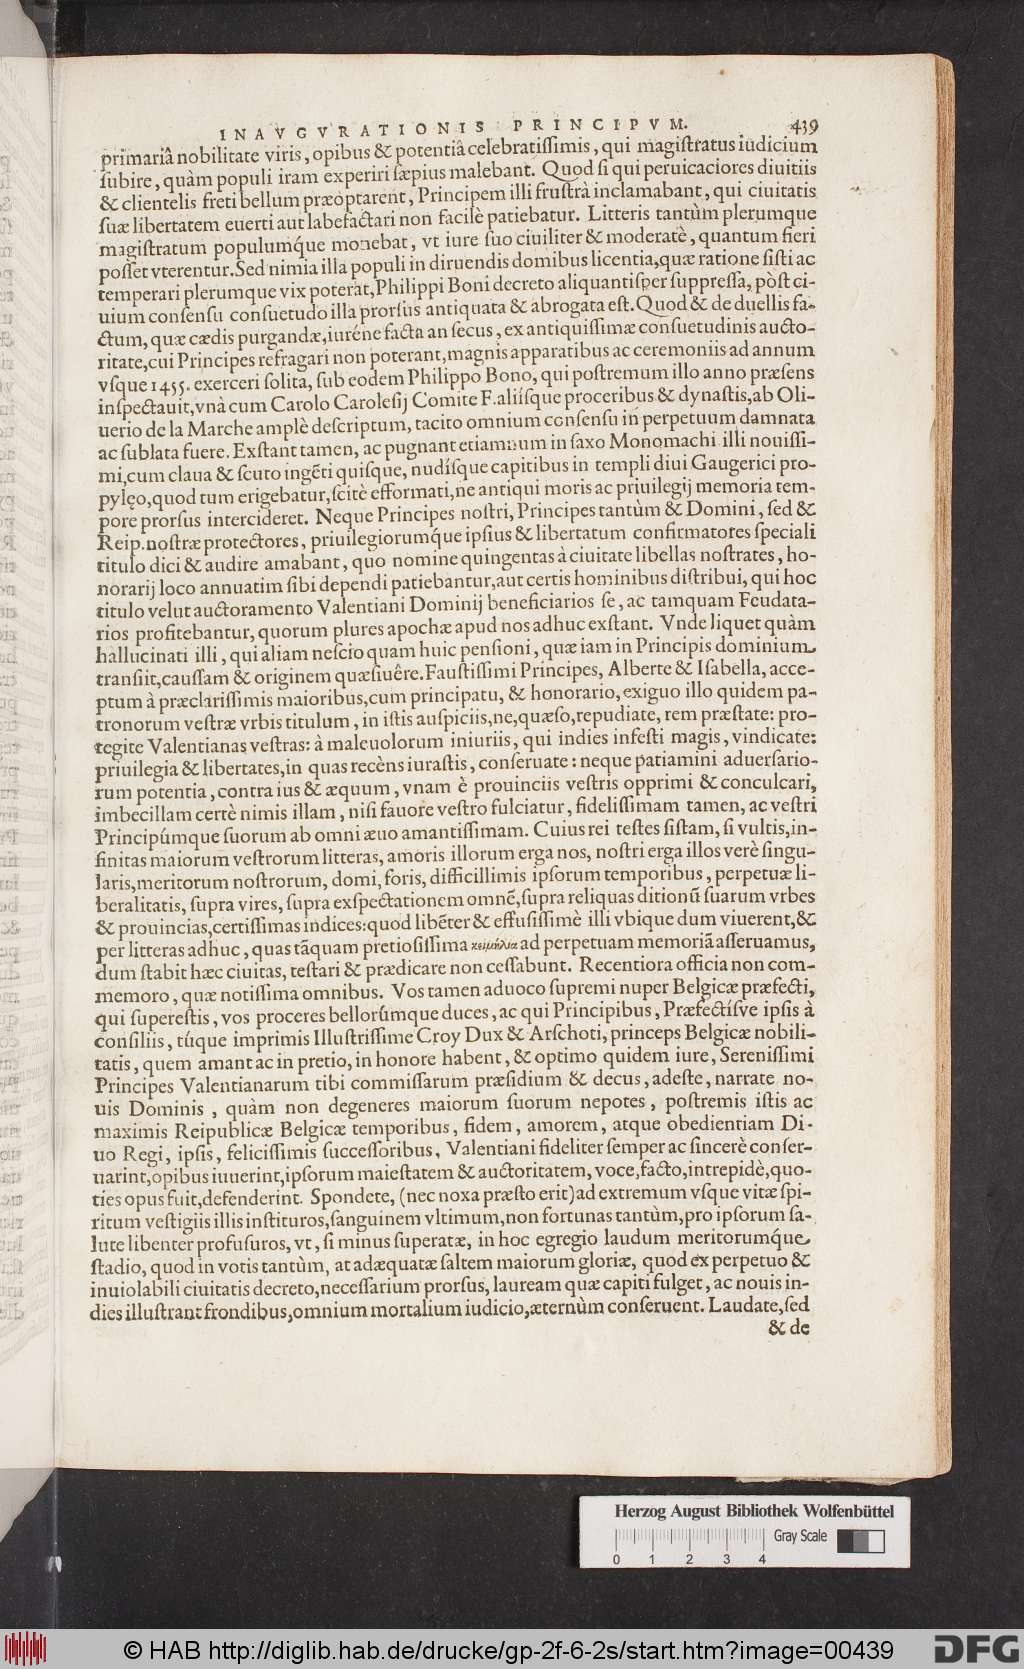 INAVGVRATIONIS PRINCIPVM. 439
primariâ nobilitate viris, opibus & potentiâ celebratissimis, qui magistratus iudicium
subire, quàm populi iram experiri sæpius malebant. Quod si qui peruicaciores diuitiis
& clientelis freti bellum præoptarent, Principem illi frustrà inclamabant, qui ciuitatis
suæ libertatem euerti aut labefactari non facilè patiebatur. Litteris tantùm plerumque
magistratum populumq́ue monebat, vt iure suo ciuiliter & moderatè, quantum fieri
posset vterentur. Sed nimia illa populi in diruendis domibus licentia, quæ ratione sisti ac
temperari plerumque vix poterat, Philippi Boni decreto aliquantisper suppressa, pòst ci-
uium consensu consuetudo illa prorsus antiquata & abrogata est. Quod & de duellis fa-
ctum, quæ cædis purgandæ, iuréne facta an secus, ex antiquissimæ consuetudinis aucto-
ritate, cui Principes refragari non poterant, magnis apparatibus ac ceremoniis ad annum
vsque 1455. exerceri solita, sub eodem Philippo Bono, qui postremum illo anno præsens
inspectauit, vnà cum Carolo Carolesij Comite F. aliísque proceribus & dynastis, ab Oli-
uerio de la Marche amplè descriptum, tacito omnium consensu in perpetuum damnata
ac sublata fuere. Exstant tamen, ac pugnant etiamnum in saxo Monomachi illi nouissi-
mi, cum claua & scuto ingẽti quisque, nudísque capitibus in templi diui Gaugerici pro-
pylęo, quod tum erigebatur, scitè efformati, ne antiqui moris ac priuilegij memoria tem-
pore prorsus intercideret. Neque Principes nostri, Principes tantùm & Domini, sed &
Reip. nostræ protectores, priuilegiorumq́ue ipsius & libertatum confirmatores speciali
titulo dici & audire amabant, quo nomine quingentas à ciuitate libellas nostrates, ho-
norarij loco annuatim sibi dependi patiebantur, aut certis hominibus distribui, qui hoc
titulo velut auctoramento Valentiani Dominij beneficiarios se, ac tamquam Feudata-
rios profitebantur, quorum plures apochæ apud nos adhuc exstant. Vnde liquet quàm
hallucinati illi, qui aliam nescio quam huic pensioni, quæ iam in Principis dominium
transiit, caussam & originem quæsiuêre. Faustissimi Principes, Alberte & Isabella, acce-
ptum à præclarissimis maioribus, cum principatu, & honorario, exiguo illo quidem pa-
tronorum vestræ vrbis titulum, in istis auspiciis, ne, quæso, repudiate, rem præstate: pro-
tegite Valentianas vestras: à maleuolorum iniuriis, qui indies infesti magis, vindicate:
priuilegia & libertates, in quas recèns iurastis, conseruate: neque patiamini aduersario-
rum potentia, contra ius & æquum, vnam è prouinciis vestris opprimi & conculcari,
imbecillam certè nimis illam, nisi fauore vestro fulciatur, fidelissimam tamen, ac vestri
Principúmque suorum ab omni æuo amantissimam. Cuius rei testes sistam, si vultis, in-
finitas maiorum vestrorum litteras, amoris illorum erga nos, nostri erga illos verè singu-
laris, meritorum nostrorum, domi, foris, difficillimis ipsorum temporibus, perpetuæ li-
beralitatis, supra vires, supra exspectationem omnẽ, supra reliquas ditionũ suarum vrbes
& prouincias, certissimas indices: quod libẽter & effusissimè illi vbique dum viuerent, &
per litteras adhuc, quas tãquam pretiosissima κειμήλια ad perpetuam memoriã asseruamus,
dum stabit hæc ciuitas, testari & prædicare non cessabunt. Recentiora officia non com-
memoro, quæ notissima omnibus. Vos tamen aduoco supremi nuper Belgicæ præfecti,
qui superestis, vos proceres bellorúmque duces, ac qui Principibus, Præfectísve ipsis à
consiliis, túque imprimis Illustrissime Croy Dux & Arschoti, princeps Belgicæ nobili-
tatis, quem amant ac in pretio, in honore habent, & optimo quidem iure, Serenissimi
Principes Valentianarum tibi commissarum præsidium & decus, adeste, narrate no-
uis Dominis, quàm non degeneres maiorum suorum nepotes, postremis istis ac
maximis Reipublicæ Belgicæ temporibus, fidem, amorem, atque obedientiam Di-
uo Regi, ipsis, felicissimis successoribus, Valentiani fideliter semper ac sincerè conser-
uarint, opibus iuuerint, ipsorum maiestatem & auctoritatem, voce, facto, intrepidè, quo-
ties opus fuit, defenderint. Spondete, (nec noxa præsto erit) ad extremum vsque vitæ spi-
ritum vestigiis illis instituros, sanguinem vltimum, non fortunas tantùm, pro ipsorum sa-
lute libenter profusuros, vt, si minus superatæ, in hoc egregio laudum meritorumq́ue
stadio, quod in votis tantùm, at adæquatæ saltem maiorum gloriæ, quod ex perpetuo &
inuiolabili ciuitatis decreto, necessarium prorsus, lauream quæ capiti fulget, ac nouis in-
dies illustrant frondibus, omnium mortalium iudicio, æternùm conseruent. Laudate, sed
& de
Herzog August Bibliothek Wolfenbüttel
Gray Scale
0 1 2 3 4
© HAB http://diglib.hab.de/drucke/gp-2f-6-2s/start.htm?image=00439
DFG